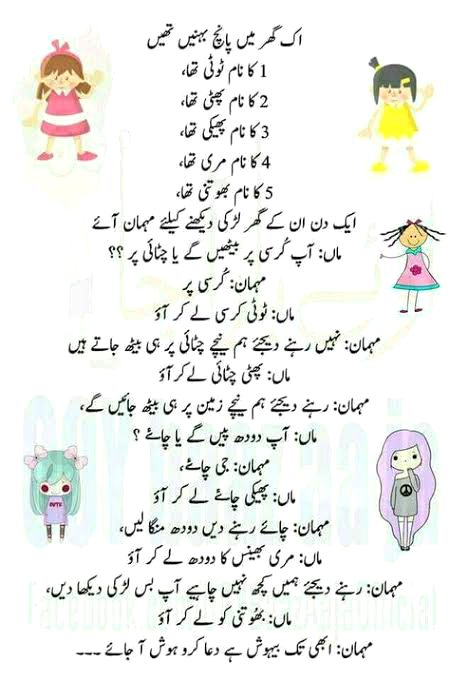 اک گھر میں پانچ بہنیں تھیں
1 کا نام ٹوٹی تھا،
2 کا نام پھٹی تھا،
3 کا نام پھیکی تھا،
4 کا نام مری تھا،
5 کا نام بھوتنی تھا،
ایک دن ان کے گھر لڑکی دیکھنے کیلئے مہمان آئے
ماں: آپ کُرسی پر بیٹھیں گے یا چٹائی پر ؟؟
مہمان: کُرسی پر
ماں: ٹوٹی کرسی لے کر آؤ
مہمان: نہیں رہنے دیجئے ہم نیچے چٹائی پر ہی بیٹھ جاتے ہیں
ماں: پھٹی چٹائی لے کر آؤ
مہمان: رہنے دیجئے ہم نیچے زمین پر ہی بیٹھ جائیں گے،
ماں: آپ دودھ پیں گے یا چائے ؟
مہمان: جی چائے،
ماں: پھیکی چائے لے کر آؤ
مہمان: چائے رہنے دیں دودھ منگا لیں،
ماں: مری بھینس کا دودھ لے کر آؤ
مہمان: رہنے دیجئے ہمیں کچھ نہیں چاہیے آپ بس لڑکی دیکھا دیں،
ماں: بھُوتنی کو لے کر آؤ
مہمان: ابھی تک بیہوش ہے دعا کرو ہوش آ جائے ---
CUTE